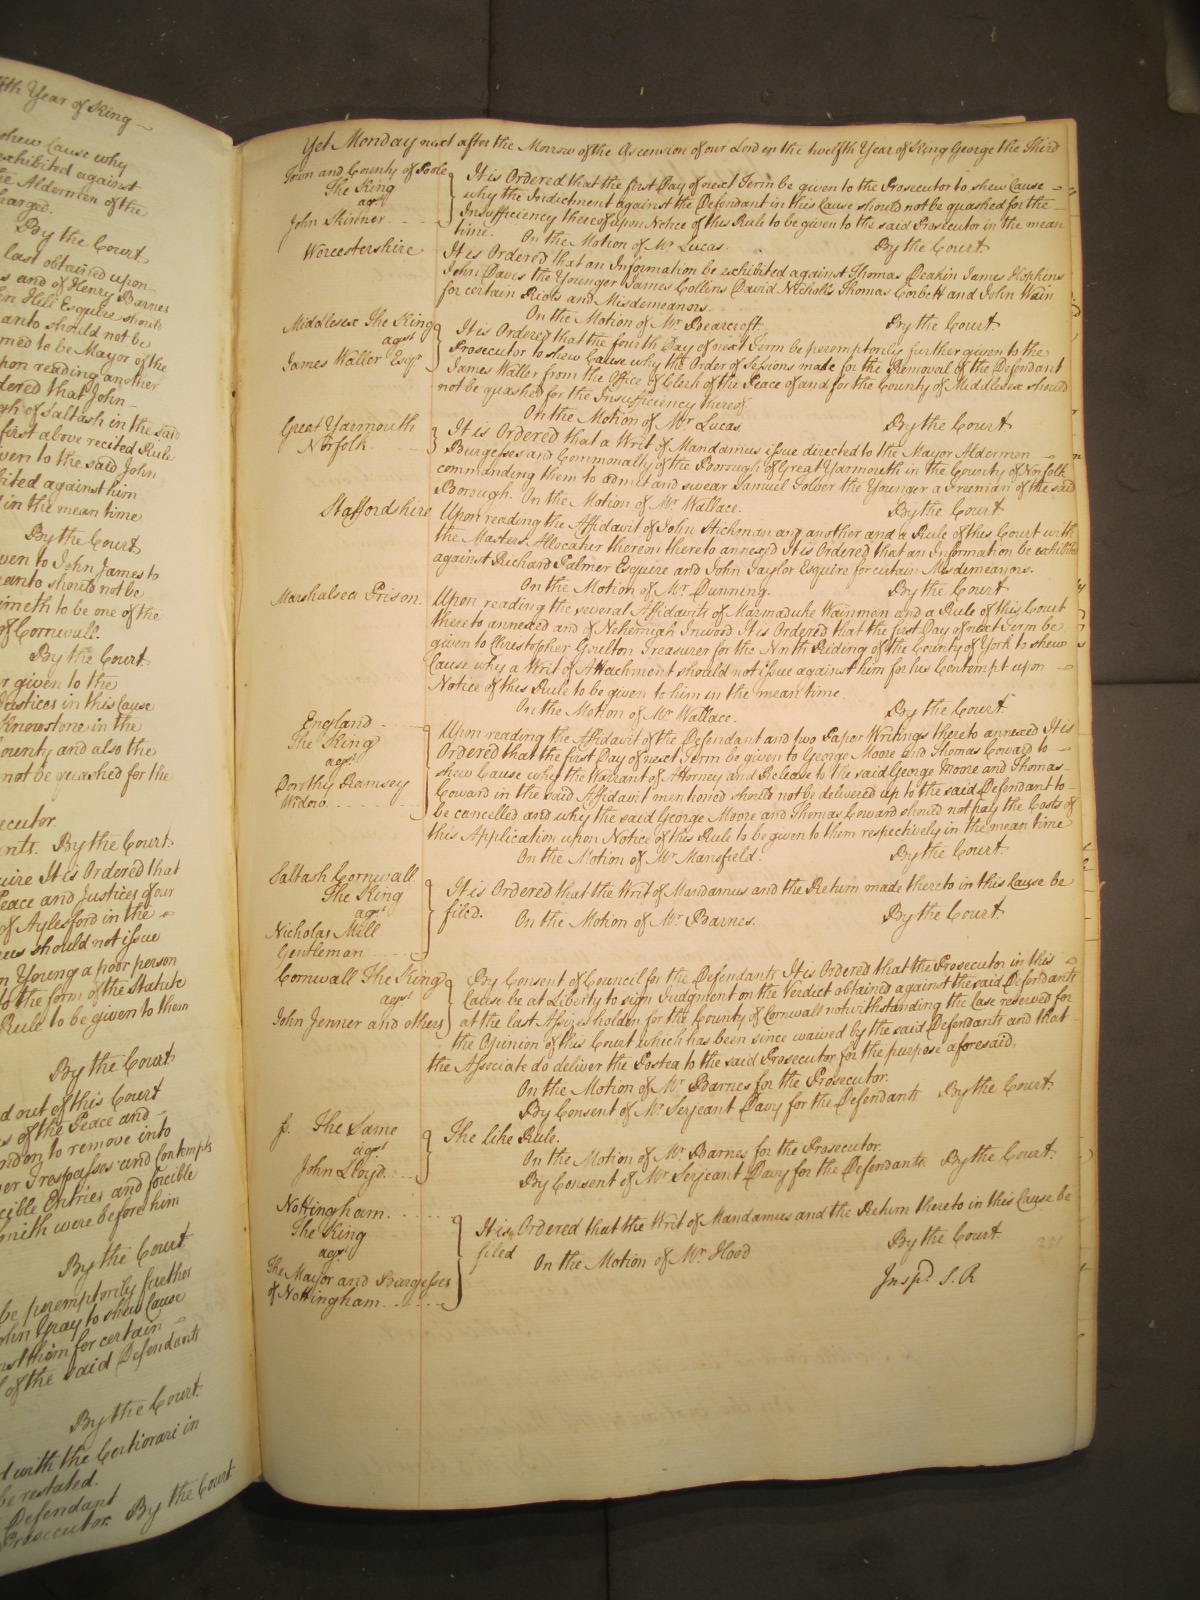 fth Year of King
shew Cause why
exhibited against
the Aldermen of the
harged.
By the Court
last obtained upon
s and of Henry Barnes
Hill Esquire should
anto should not be
med to be Mayor of the
pon reading another
dered that John
gh of Saltash in the said
first above recited Rule
ven to the said John
bited against him
in the mean time
By the Court
ven to John James to
anto should not be
imeth to be one of the
of Cornwall.
By the Court
r given to the
Justices in this Cause
Knowstone in the
County and also the
not be quashed for the
ecutor.
ants. By the Court
uire It is Ordered that
Peace and Justices of our
of Aylesford in the
should not issue
n Young a poor person
to the form of the Statute
Rule to be given to them
By the Court
d out of this Court
s of the Peace and
ndon to remove into
er Trespasses and Contempts
cible Entries and forcible
mith were before him
By the Court
be peremptorily further
ohn Gray to shew Cause
nst him for certain
of the said Defendants
By the Court.
d with the Certiorari in
be restated.
Defendant
Prosecutor. By the Court
Yet Monday next after the Morrow of the Ascension of our Lord in the twelfth Year of King George the Third
Town and County of Poole
The King
agst
John Skinner
It is Ordered that the first Day of next Term be given to the Prosecutor to shew Cause
why the Indictment against the Defendant in this Cause should not be quashed for the
Insufficiency thereof upon Notice of this Rule to be given to the said Prosecutor in the mean
time. On the Motion of Mr. Lucas. By the Court
Worcestershire
It is Ordered that an Information be exhibited against Thomas Deakin James Hopkins
John Davis the Younger James Collins David Nicholls Thomas Corbett and John Wain
for certain Riots and Misdemeanors.
On the Motion of Mr. Bearcroft. By the Court
Middlesex The King
agst
James Waller Esqr.
It is Ordered that the fourth Day of next Term be peremptorily further given to the
Prosecutor to shew Cause why the Order of Sessions made for the Removal of the Defendant
James Waller from the Office of Clerk of the Peace of and for the County of Middlesex should
not be quashed for the Insufficiency thereof.
On the Motion of Mr. Lucas By the Court
Great Yarmouth
Norfolk
It is Ordered that a Writ of Mandamus issue directed to the Mayor Aldermen
Burgesses and Commonalty of the Borough of Great Yarmouth in the County of Norfolk
commanding them to admit and swear Samuel Tolver the Younger a Freeman of the said
Borough. On the Motion of Mr. Wallace. By the Court
Staffordshire
Upon reading the Affidavit of John Stichman and another and a Rule of this Court with
the Masters Allocatur thereon thereto annexed It is Ordered that an Information be exhibited
against Richard Palmer Esquire and John Taylor Esquire for certain Misdemeanors.
On the Motion of Mr. Dunning. By the Court
Marshalsea Prison.
Upon reading the several Affidavits of Marmaduke Wainman and a Rule of this Court
thereto annexed and of Nehemiah Inwood It is Ordered that the first Day of next Term be
given to Christopher Goulton Treasurer for the North Riding of the County of York to shew
Cause why a Writ of Attachment should not issue against him for his Contempt upon
Notice of this Rule to be given to him in the mean time.
On the Motion of Mr. Wallace. By the Court
England
The King
agst
Dorothy Ramsey
Widow
Upon reading the Affidavit of the Defendant and two Paper Writings thereto annexed It is
Ordered that the first Day of next Term be given to George Moore and Thomas Coward to
shew Cause why the Warrant of Attorney and Release to the said George Moore and Thomas
Coward in the said Affidavit mentioned should not be delivered up to the said Defendant to
be cancelled and why the said George Moore and Thomas Coward should not pay the Costs of
this Application upon Notice of this Rule to be given to them respectively in the mean time
On the Motion of Mr. Mansfield. By the Court
Saltash Cornwall
The King
agst
Nicholas Mill
Gentleman
It is Ordered that the Writ of Mandamus and the Return made thereto in this Cause be
filed. On the Motion of Mr. Barnes. By the Court
Cornwall The King
agst
John Jenner and others
By Consent of Council for the Defendants It is Ordered that the Prosecutor in this
Cause be at Liberty to sign Judgment on the Verdict obtained against the said Defendants
at the last Assizes holden for the County of Cornwall notwithstanding the Case reserved for
the Opinion of this Court which has been since waived by the said Defendants and that
the Associate do deliver the Postea to the said Prosecutor for the purpose aforesaid.
On the Motion of Mr. Barnes for the Prosecutor.
By Consent of Mr. Serjeant Davy for the Defendants By the Court
The Same
agst
John Lloyd
The like Rule.
On the Motion of Mr. Barnes for the Prosecutor.
By Consent of Mr. Serjeant Davy for the Defendants. By the Court.
Nottingham
The King
agst
The Mayor and Burgesses
of Nottingham
It is Ordered that the Writ of Mandamus and the Return thereto in this Cause be
filed On the Motion of Mr. Hood By the Court.
Inspd. S. R